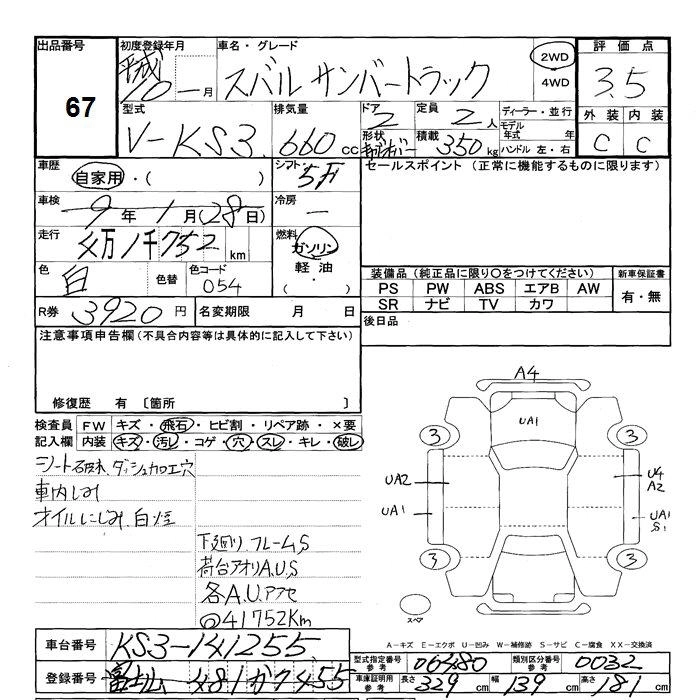 出品番号
67
初度登録年月
平成
10 — 月
車名・グレード
スバル サンバートラック
2WD
4WD
評価点
3.5
外装 内装
C C
型式
V-KS3
排気量
660 cc
ドア
2
定員
2 人
ディーラー・並行
モデル年式 年
ハンドル 左・右
形状
積載
350 kg
車歴
自家用・( )
シフト
5F
セールスポイント (正常に機能するものに限ります)
車検
9年1月(28日)
冷房
—
走行
4万1千752 km
燃料
ガソリン
軽油
( ・ )
色
白
色替
色コード
054
装備品(純正品に限り○をつけてください)
新車保証書
PS PW ABS エアB AW
有・無
SR ナビ TV カワ
R券 3920 円
名変期限 月 日
後日品
注意事項申告欄(不具合内容等は具体的に記入して下さい)
修復歴 有 〔箇所 〕
検査員 FW キズ・飛石・ヒビ割・リペア跡・×要
記入欄 内装 キズ・汚レ・コゲ・穴・スレ・キレ・破レ
シート破れ、ダッシュカロエ穴
車内しみ
オイルにじみ、白煙
下廻り、フレームS
荷台アオリA,U,S
各A.U.アセ
◎41752Km
A4
UA1
3
3
UA2
U4
A2
UA1
UA1
S1
3
3
スペア
A－キズ E－エクボ U－凹み W－補修跡 S－サビ C－腐食 XX－交換済
車台番号 KS3-141255
型式指定番号 参考 06480
類別区分番号 参考 0032
登録番号 富士山 481か7455
車庫証明用 参考 長さ 329 cm 幅 139 cm 高さ 181 cm